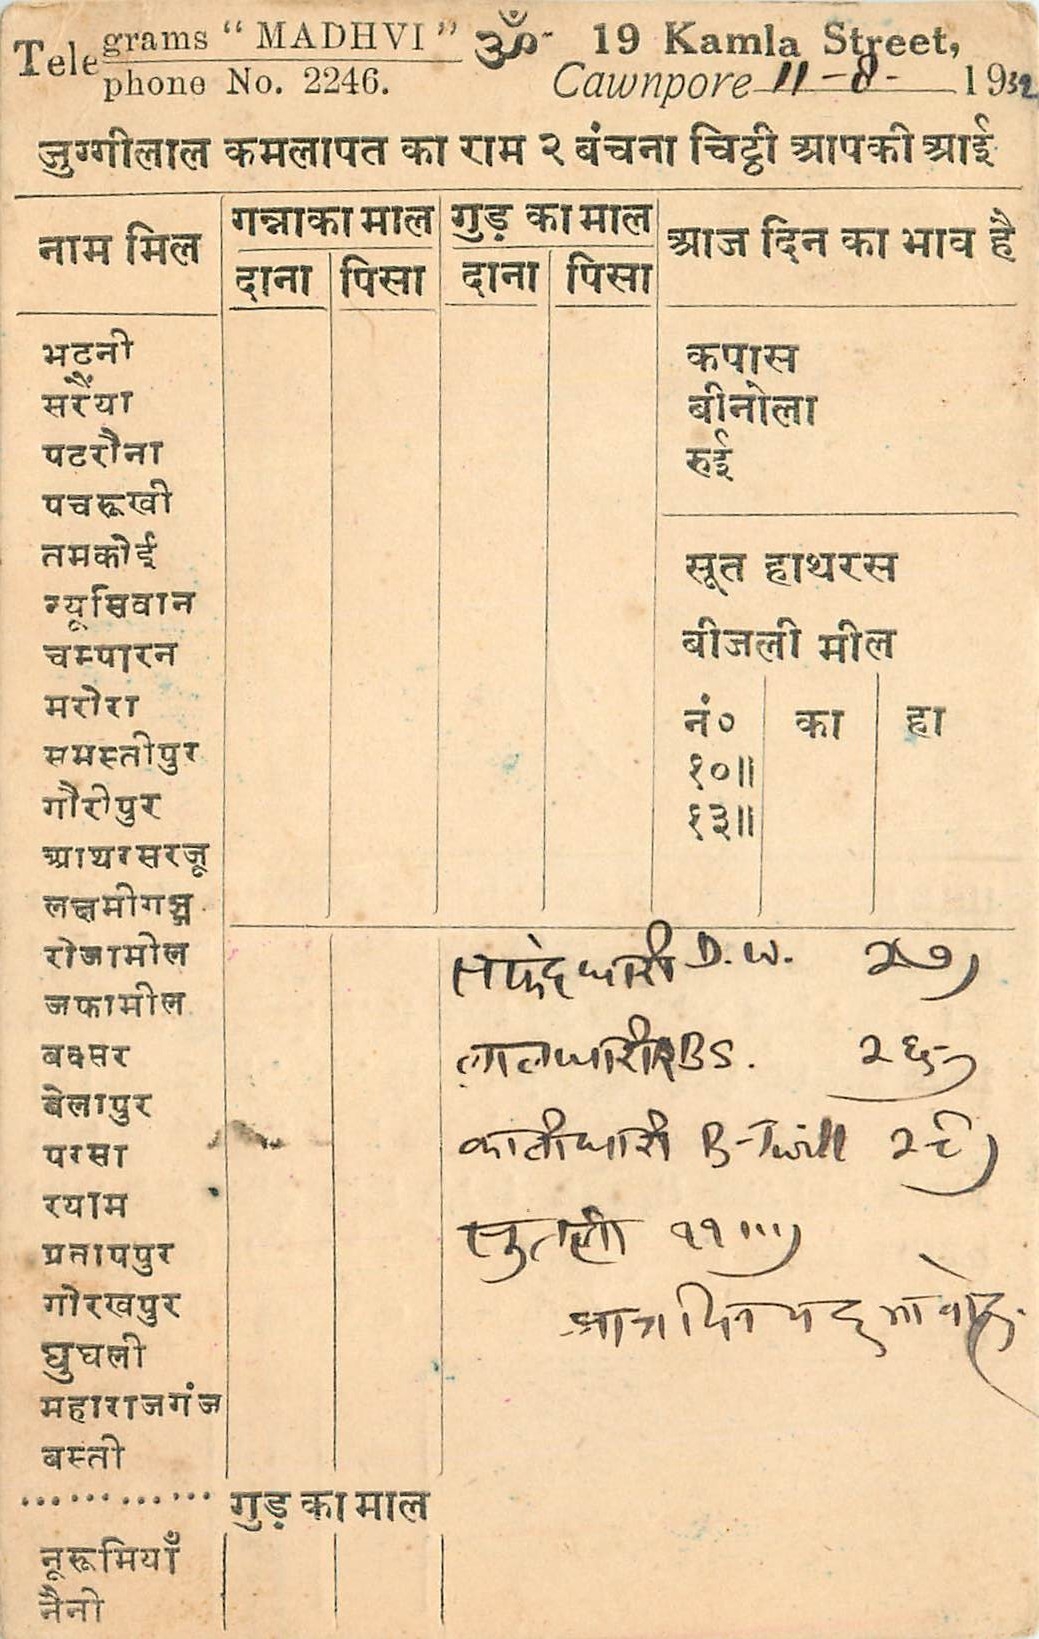 Telegrams "MADHVI"
Telephone No. 2246.
ॐ
19 Kamla Street,
Cawnpore 11-8- 1932
जुग्गीलाल कमलापत का राम २ बंचना चिट्ठी आपकी आई
नाम मिल
गन्नाका माल
गुड़ का माल
आज दिन का भाव है
दाना पिसा दाना पिसा
भटनी
सरैंया
पटरौना
पचरूखी
तमकोई
न्यूसिवान
चम्पारन
मरोरा
समस्तीपुर
गौरीपुर
आथरसरजू
लक्ष्मीगञ्ज
रोजामील
जफामील
बक्सर
बेलापुर
परसा
रयाम
प्रतापपुर
गोरखपुर
घुघली
महाराजगंज
बस्ती
कपास
बीनोला
रुई
सूत हाथरस
बीजली मील
नं० का हा
१०॥
१३॥
सफेदधारी D.W. २७)
लालधारी BS. २६)
कालीधारी B-Twill २८)
सुतली ११॥।)
............ गुड़ का माल
नूरूमियाँ
नैनी